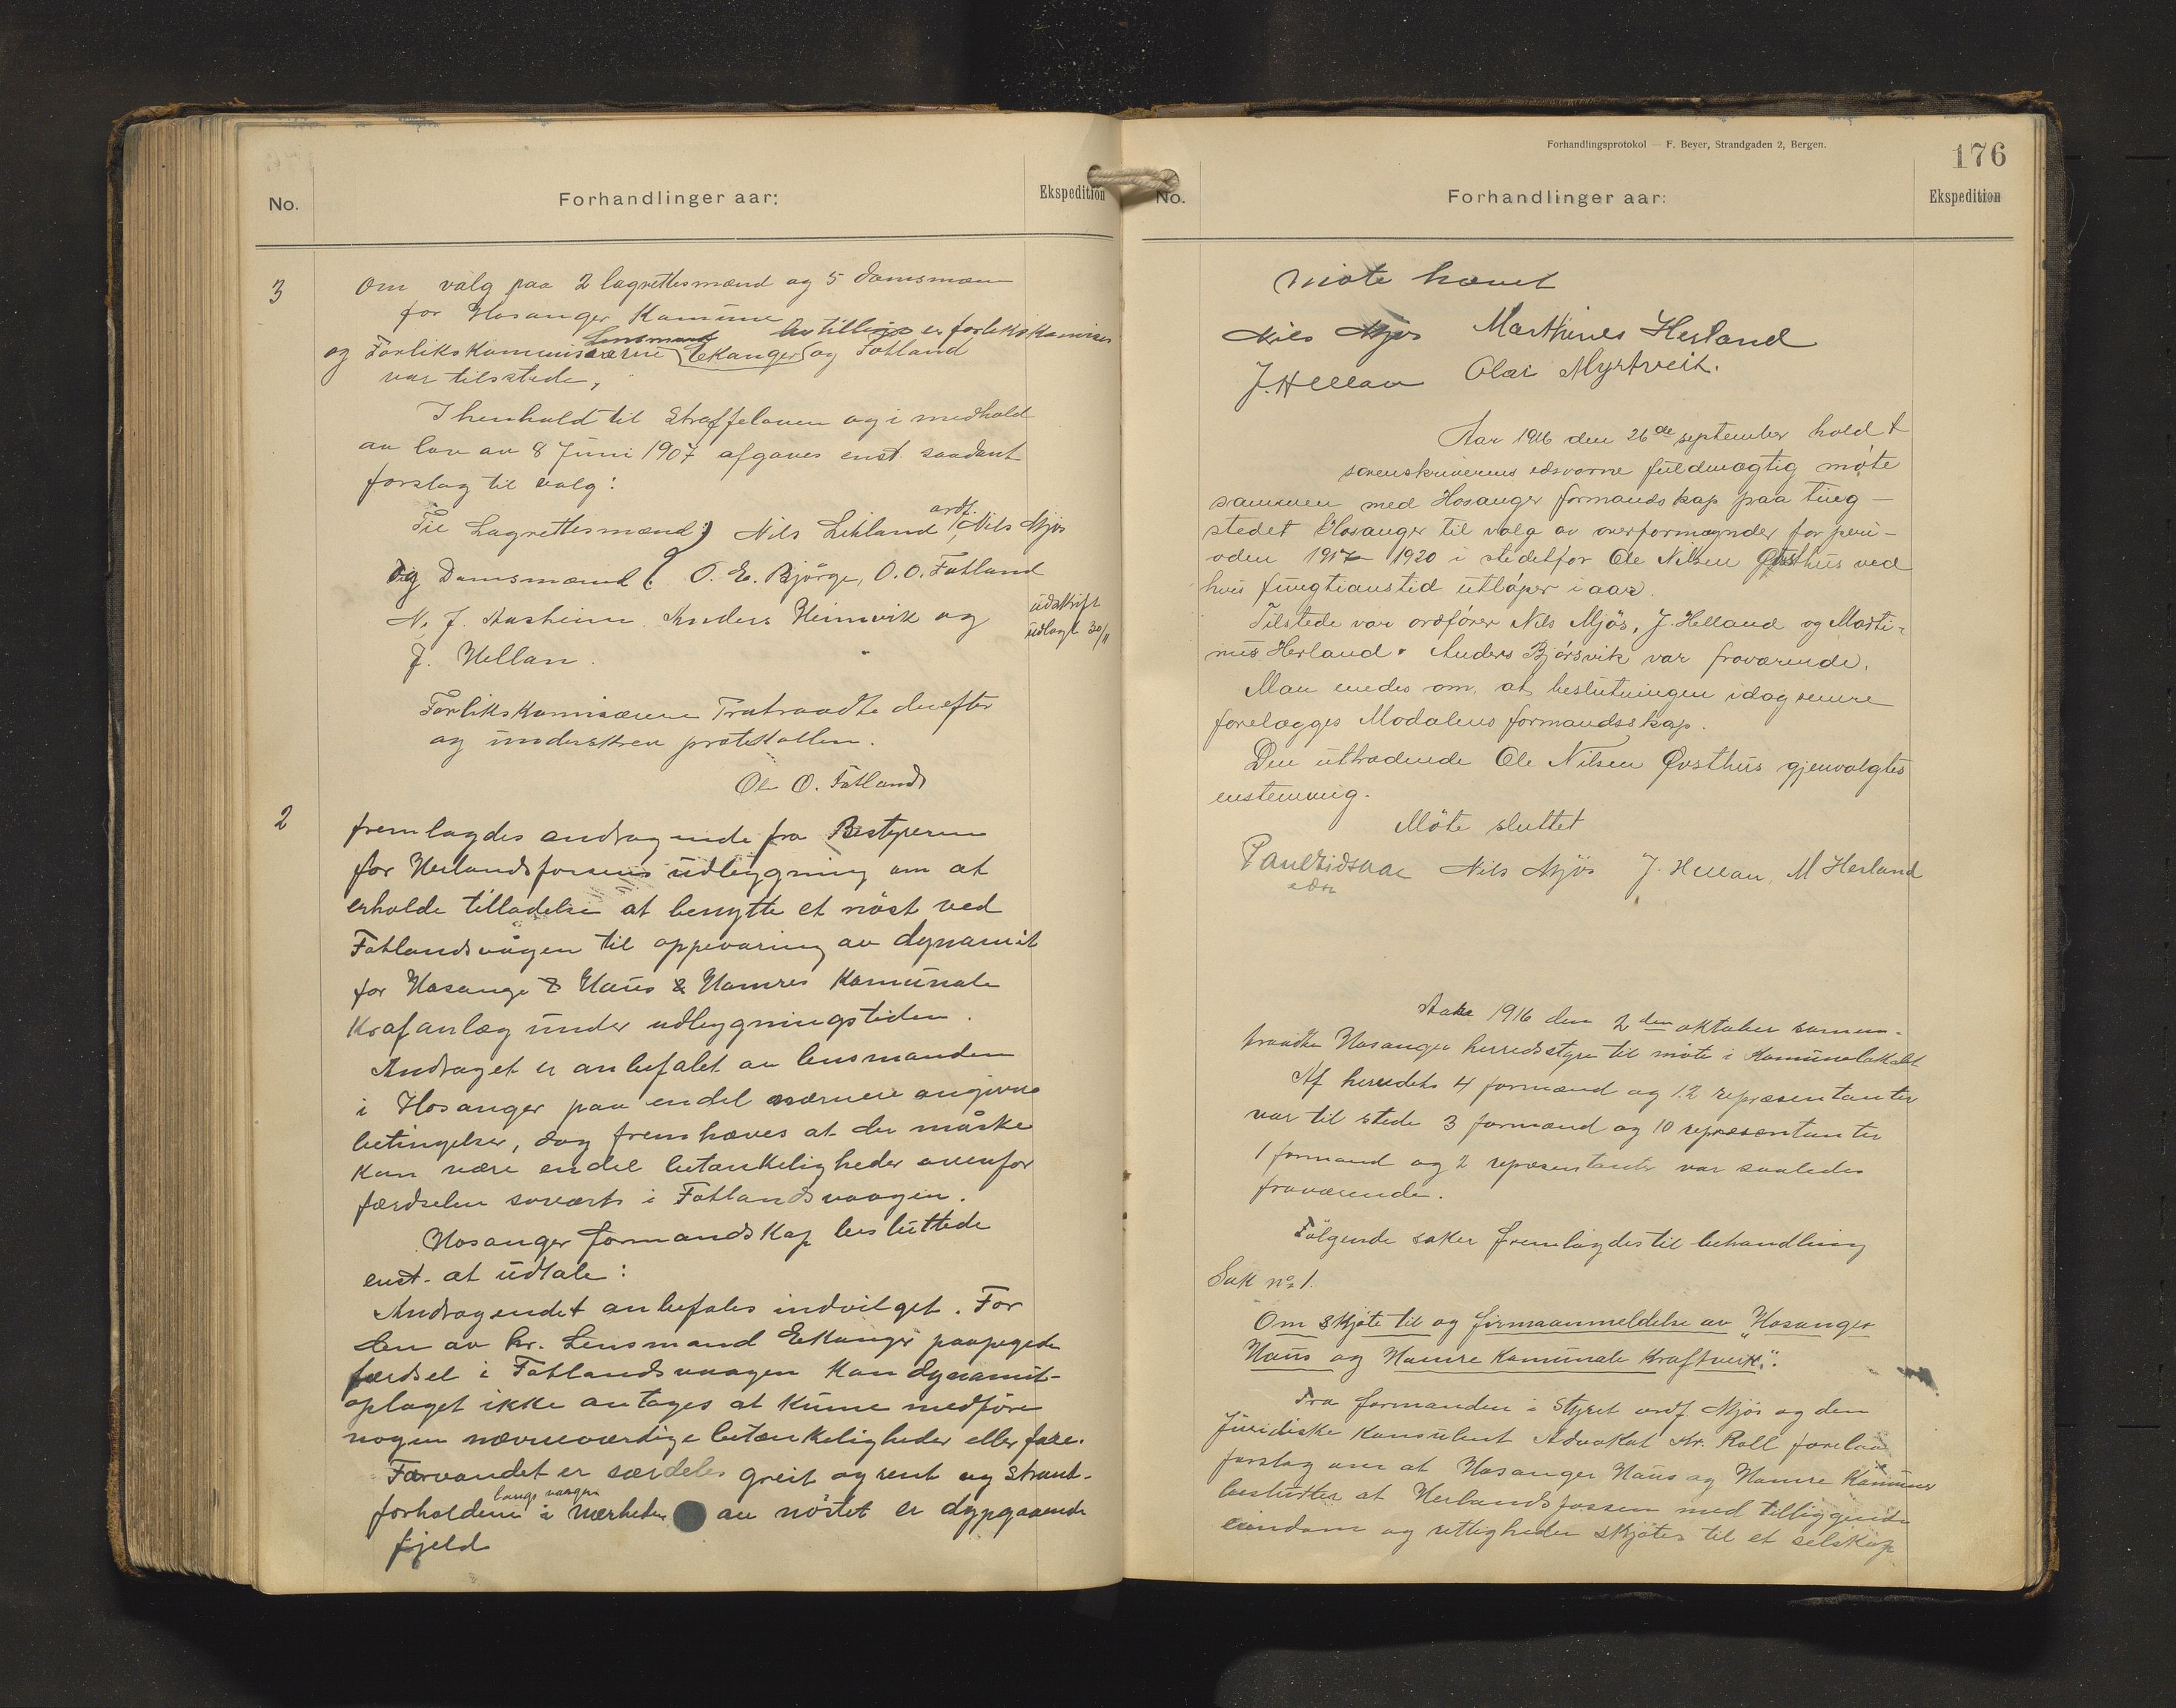 No.
Forhandlinger aar:
Ekspedition
3
Om valg paa 2 lagrettesmænd og 5 Domsmæn
for Hosanger Kamune
Lensmand
og Forlikskommissærene Ekanger og Fotland
var tilstede,
I henhold til Straffeloven og i medhold
av lov av 8 Juni 1907 afgaves enst. saadant
forslag til valg:
ordf.
Til Lagrettesmænd: Nils Litland, Nils Mjøs
og Domsmænd O. E. Bjørge, O. O. Fotland
N. J. Aasheim Anders Heimvik og
J. Hellan.
udskrift
udlagt 30/11
Forlikskomisærene Tratraadte derefter
og underskrev protokollen.
Ole O. Fotland
2
fremlagdes andragende fra Bestyreren
for Herlandsfossens udbygning om at
erholde tilladelse at benytte et nöst ved
Fotlandsvågen til oppevaring av dynamit
for Hosange & Haus & Hamres Kamunale
Krafanlæg under udbygningstiden.
Andraget er anbefalet av lensmanden
i Hosanger paa endel nærmere angivne
betingelser, dog fremhæves at der måske
kan være endel betænkeligheder ovenfor
færdselen sovært i Fotlandsvaagen.
Hosanger formandskap besluttede
enst. at udtale:
Andragendet anbefales indvilget. For
den av hr. Lensmand Ekanger paapegede
færdsel i Fotlandsvaagen kan dynamit-
oplaget ikke antages at kunne medføre
nogen nævneværdige betænkeligheder eller fare.
Farvandet er særdeles greit og rent og Strand-
langs vaagen
forholdene i nærheden av nöstet er dypgaaende
fjeld
Forhandlingsprotokol — F. Beyer, Strandgaden 2, Bergen.
176
No.
Forhandlinger aar:
Ekspedition
Møte hævet
Nils Mjøs Marthinus Herland
J. Hellan Olai Myrtveit.
Aar 1916 den 26de september holdt
sorenskriverens edsvorne fuldmægtig møte
sammen med Hosanger formandskap paa ting-
stedet Hosanger til valg av overformynder for peri-
oden 1917–1920 i stedetfor Ole Nilsen Øvsthus ved
hvis fungtionstid utløper i aar.
Tilstede var ordfører Nils Mjøs, J. Helland og Marti-
nus Herland. Anders Bjørsvik var fraværende.
Man enedes om, at beslutningen idag senere
forelægges Modalens formandsskap.
Den uttrædende Ole Nilsen Øvsthus gjenvalgtes
enstemmig.
Möte sluttet
Nils Mjös J. Hellan, M Herland
Aar 1916 den 2den oktober sammen-
traadte Hosanger herredsstyre til møte i Kamunelokalet
Af herredets 4 formænd og 12 repræsentanter
var til stede 3 formænd og 10 repræsentanter
1 formand og 2 repræsentanter var saaledes
fraværende.
Følgende saker fremlagdes til behandling
Sak no 1.
Om skjøte til og firmaanmeldelse av "Hosanger
Haus og Hamre Kamunale Kraftverk".
Fra formanden i Styret ordf Mjøs og den
Juridiske Konsulent Advokat Kr. Roll forelaa
forslag om at Hosanger Haus og Hamre Kamuner
beslutter at Herlandsfossen med tilliggende
eiendom og rettigheder skjøtes til et selskap